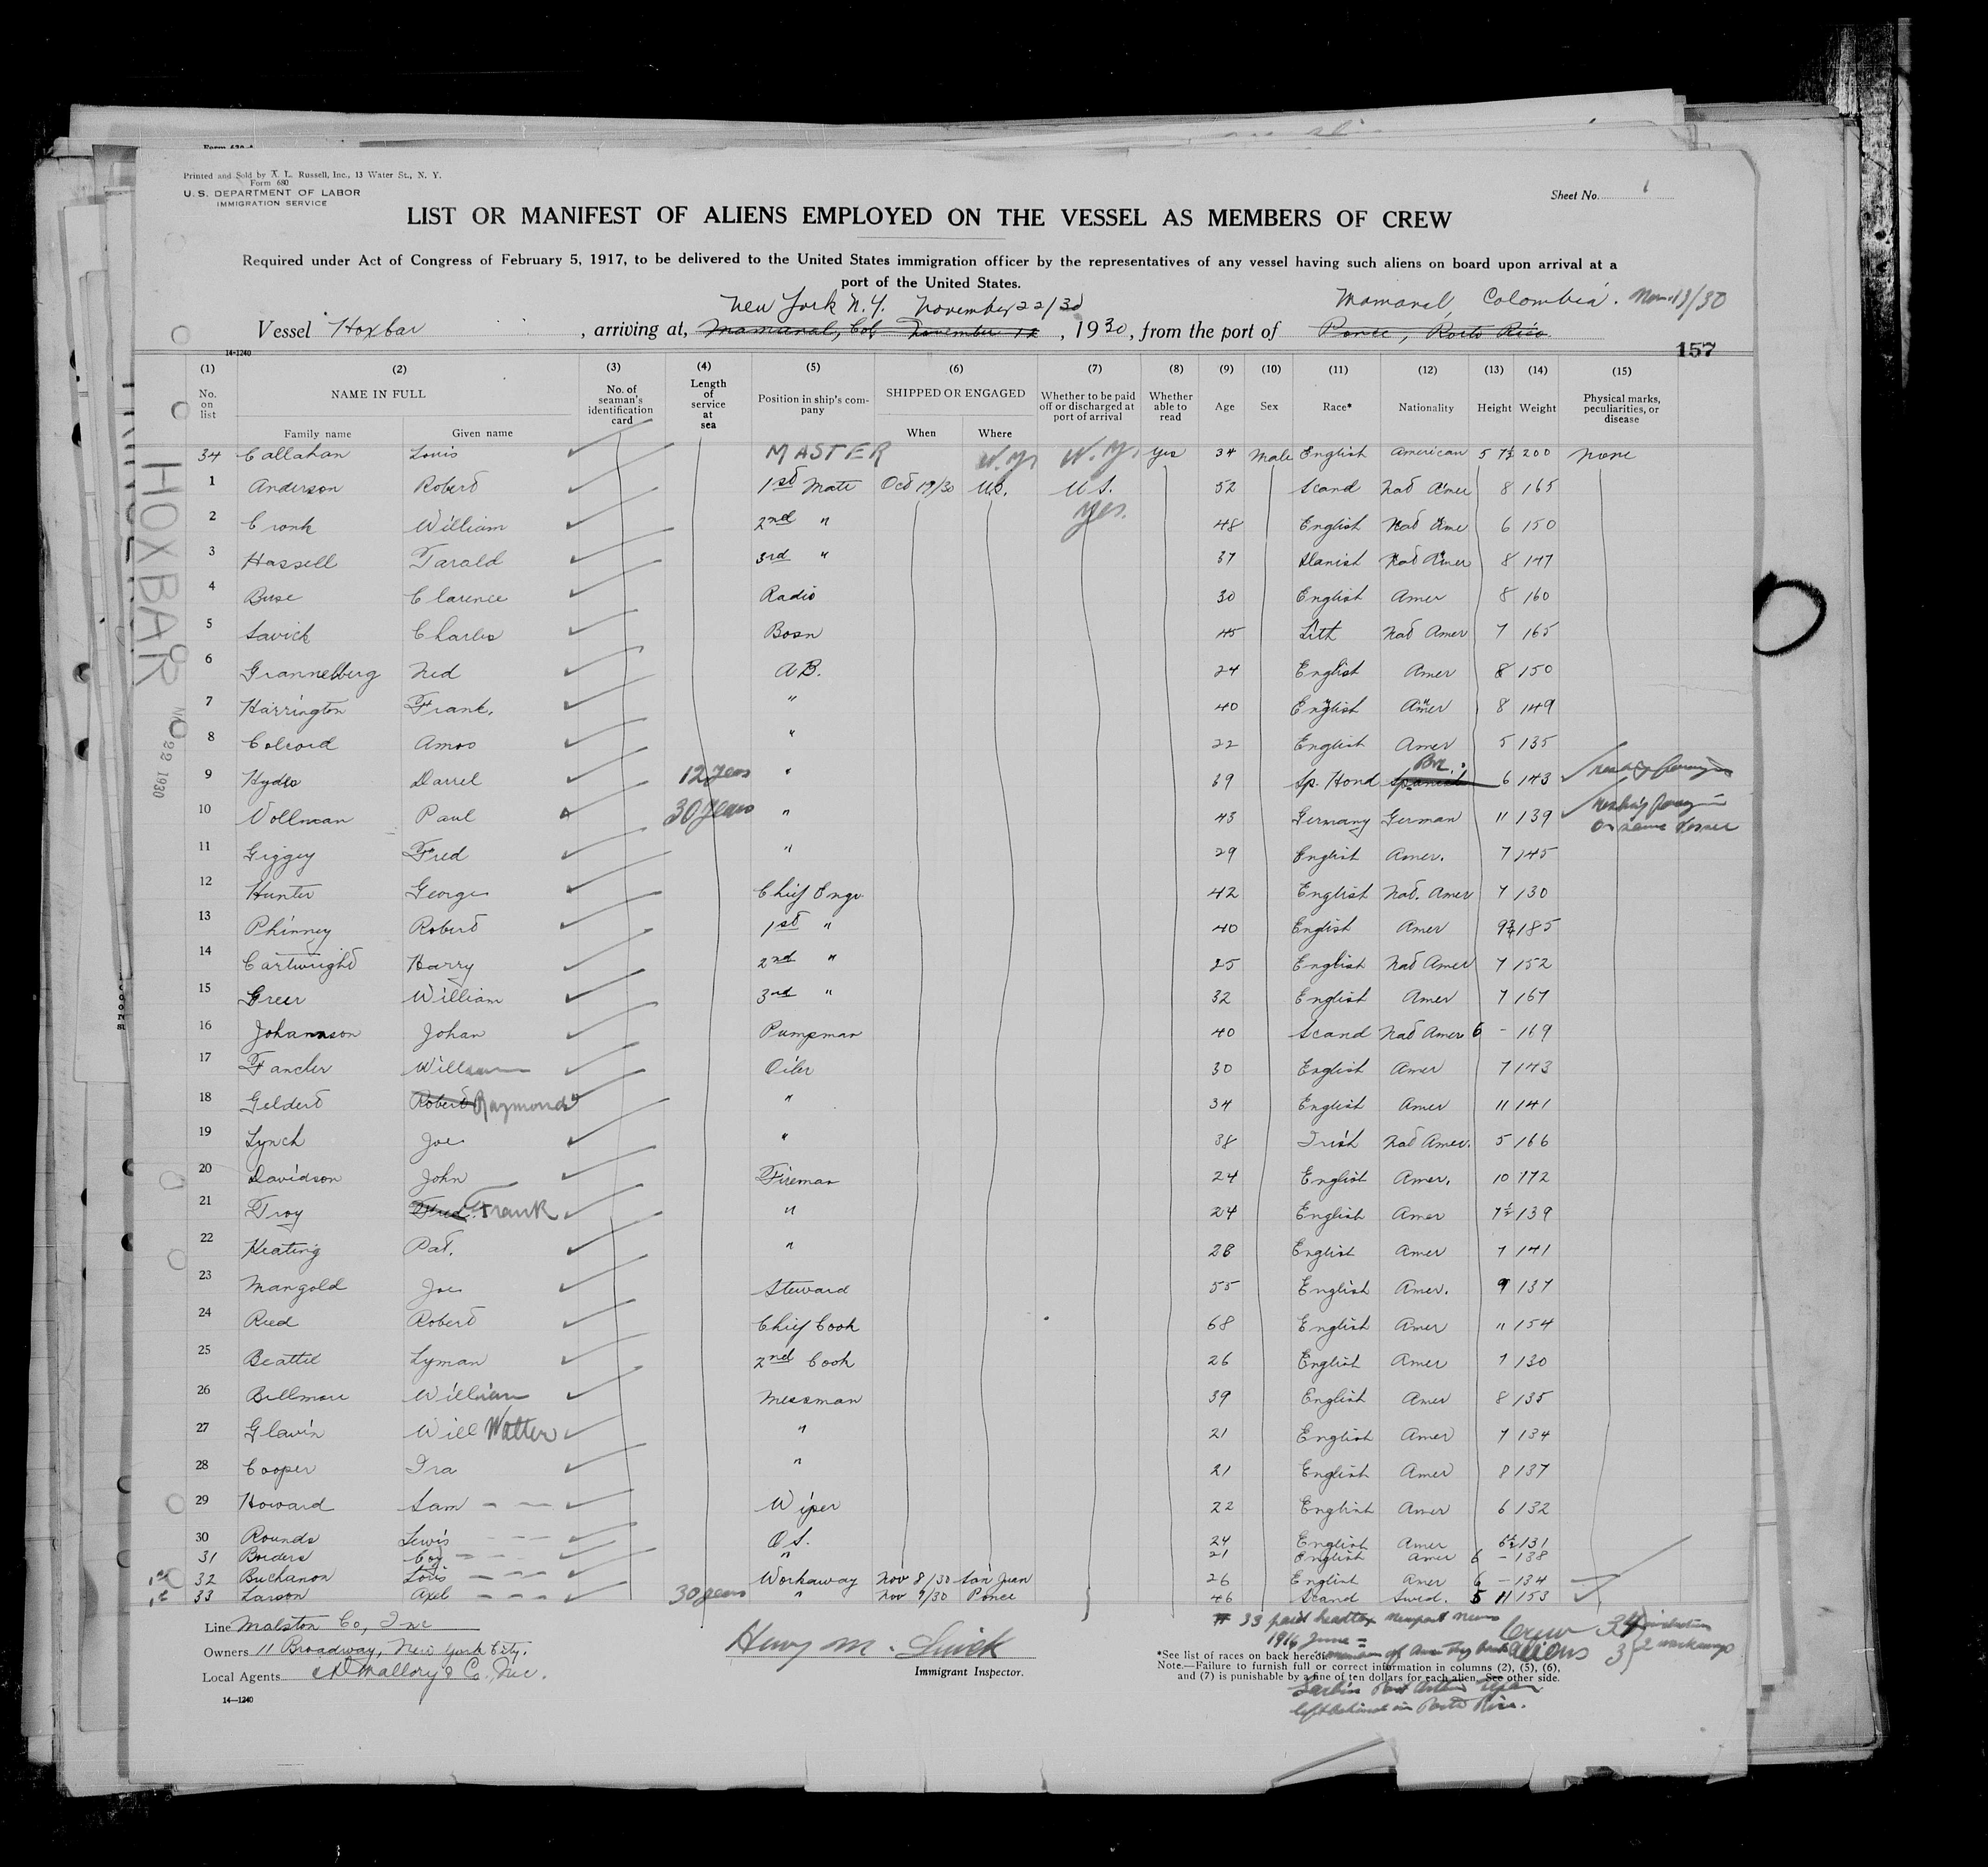 Printed and Sold by A. L. Russell, Inc., 13 Water St., N. Y.
Form 680
U. S. DEPARTMENT OF LABOR
IMMIGRATION SERVICE
Sheet No. 1
LIST OR MANIFEST OF ALIENS EMPLOYED ON THE VESSEL AS MEMBERS OF CREW
Required under Act of Congress of February 5, 1917, to be delivered to the United States immigration officer by the representatives of any vessel having such aliens on board upon arrival at a
port of the United States.
New York N.Y. November 22/30 Mamonal, Colombia. Nov. 13/30
Vessel Hoxbar , arriving at, Mamonal, Col November 12 , 1930, from the port of Ponce, Porto Rico
157
14-1240
(1) (2) (3) (4) (5) (6) (7) (8) (9) (10) (11) (12) (13) (14) (15)
No. on list NAME IN FULL No. of seaman's identification card Length of service at sea Position in ship's company SHIPPED OR ENGAGED Whether to be paid off or discharged at port of arrival Whether able to read Age Sex Race* Nationality Height Weight Physical marks, peculiarities, or disease
Family name Given name When Where
34 Callahan Louis MASTER N.Y. N.Y. yes 34 Male English American 5 7½ 200 none
1 Anderson Robert 1st Mate Oct 19/30 U.S. U.S. 52 Scand Nat Amer 8 165
2 Cronk William 2nd " yes. 48 English Nat Ame 6 150
3 Hassell Tarald 3rd " 37 Danish Nat Amer 8 147
4 Buse Clarence Radio 30 English Amer 8 160
5 Savick Charles Bosn 45 Lith Nat Amer 7 165
6 Grannelberg Ned A.B. 24 English Amer 8 150
7 Harrington Frank. " 40 English Amer 8 149
8 Colcord Amos " 22 English Amer 5 135
9 Hydes Darrel 12 years " 39 Sp. Hond Spanish Br. 6 143
10 Vollman Paul 30 years " 43 Germany German 11 139 on same vessel
11 Giggey Fred " 29 English Amer. 7 145
12 Hunter George Chief Engr. 42 English Nat. Amer 7 130
13 Phinney Robert 1st " 40 English Amer 9¾ 185
14 Cartwright Harry 2nd " 25 English Nat Amer 7 152
15 Greer William 3rd " 32 English Amer 7 167
16 Johannson Johan Pumpman 40 Scand Nat Amer 6 - 169
17 Fancher William Oiler 30 English Amer 7 143
18 Geldert Robert Raymond " 34 English Amer 11 141
19 Lynch Joe " 38 Irish Nat Amer. 5 166
20 Davidson John Fireman 24 English Amer. 10 172
21 Troy Fred. Frank " 24 English Amer 7½ 139
22 Keating Pat. " 28 English Amer 7 141
23 Mangold Joe Steward 55 English Amer. 9 137
24 Reed Robert Chief Cook 68 English Amer " 154
25 Beattie Lyman 2nd Cook 26 English Amer 7 130
26 Billmare William Messman 39 English Amer 8 135
27 Glavin Will Walter " 21 English Amer 7 134
28 Cooper Ira " 21 English Amer 8 137
29 Howard Sam Wiper 22 English Amer 6 132
30 Rounds Lewis O.S. 24 English Amer 5½ 131
31 Borders Coy " 21 English Amer 6 - 138
1st 32 Buchanon Louis Workaway Nov 8/30 San Juan 26 English Amer 6 - 134
1st 33 Larson Axel 30 years " Nov 9/30 Ponce 46 Scand Swed. 5 11 153
Line Malston Co, Inc
Owners 11 Broadway, New York City.
Local Agents C D Mallory & Co. Inc.
14—1240
Henry M.
Immigrant Inspector.
# 33 paid headtax Newport News
1916 June
Crew 34
aliens 3 2 workaways
*See list of races on back hereof.
Note.—Failure to furnish full or correct information in columns (2), (5), (6),
and (7) is punishable by a fine of ten dollars for each alien. See other side.
left behind in Porto Rico.
HOXBAR
NOV 22 1930